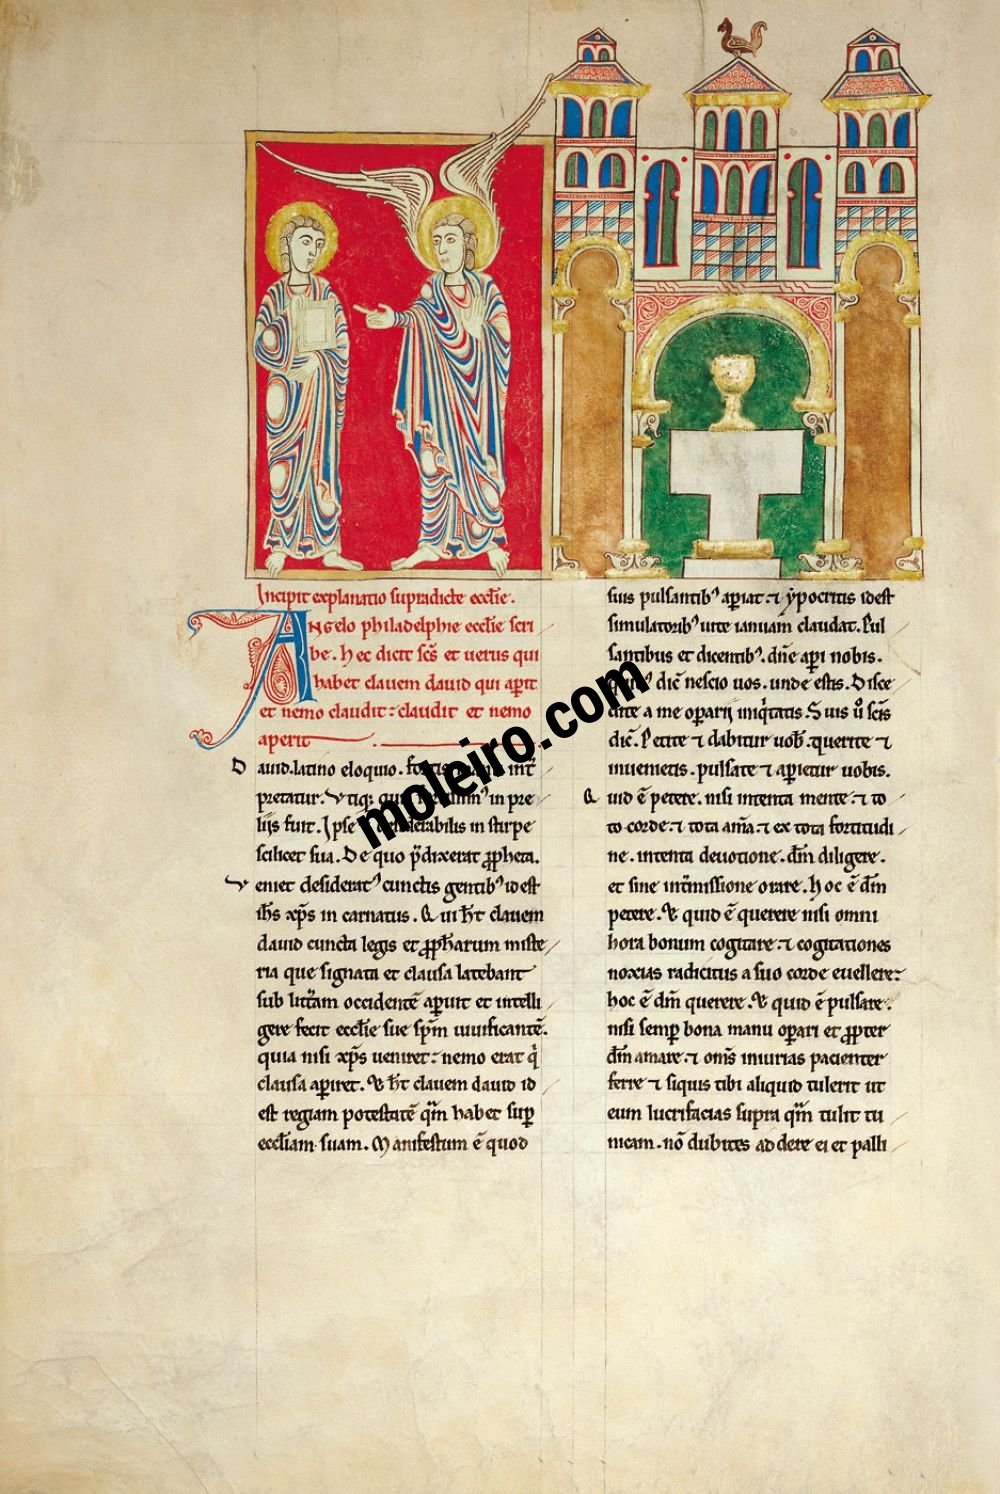 Incipit explanatio supradicte ecclīe.
ANgelo philadelphie ecclīe scri
be. hec dicit scs̄ et uerus qui
habet clauem dauid qui apit
et nemo claudit: claudit et nemo
aperit
Dauid. latino eloquio. fortis int̄
pretatur. Vtiq; in pre
liis fuit. Ipse desiderabilis in stirpe
scilicet sua. De quo p̄dixerat ꝓpheta.
Veniet desiderat᾽ cunctis gentib᾽ idest
ih̄s xp̄s in carnatus. Qui ht̄ clauem
dauid cuncta legis et ꝓph̄arum miste
ria que signata et clausa latebant
sub litt̄am occidentē apuit et intelli
gere fecit ecclīe sue sp̄m uiuificantē.
quia nisi xp̄s ueniret: nemo erat q̄
clausa apiret. Et ht̄ clauem dauid id
est regiam potestatē qm̄ habet sup
eccliam suam. Manifestum ē quod
suis pulsantib᾽ apiat. ⁊ ẏpocritis idest
simulatorib᾽ uite ianuam claudat. Pul
santibus et dicentib᾽. dn̄e api nobis.
dic̄ nescio uos. unde estis. Disce
dite a me oparij iniq̄tatis. Suis ū scīs
dic̄. Petite ⁊ dabitur uob̄. querite ⁊
inuenietis. pulsate ⁊ apietur uobis.
Quid ē petere. nisi intenta mente. ⁊ to
to corde. ⁊ tota am̄a. ⁊ ex tota fortitudi
ne. intenta deuotione. dm̄ diligere.
et sine int̄missione orare. hoc ē dm̄
petere. Et quid ē querere nisi omni
hora bonum cogitare. ⁊ cogitationes
noxias radicitus a suo corde euellere:
hoc ē dm̄ querere. Et quid ē pulsare.
nisi semp bona manu opari et ꝓpter
dm̄ amare. ⁊ oms̄ iniurias pacienter
ferre ⁊ siquis tibi aliquid tulerit ut
eum lucrifacias supra qm̄ tulit tu
nicam. nō dubites addere ei et palli
moleiro.com